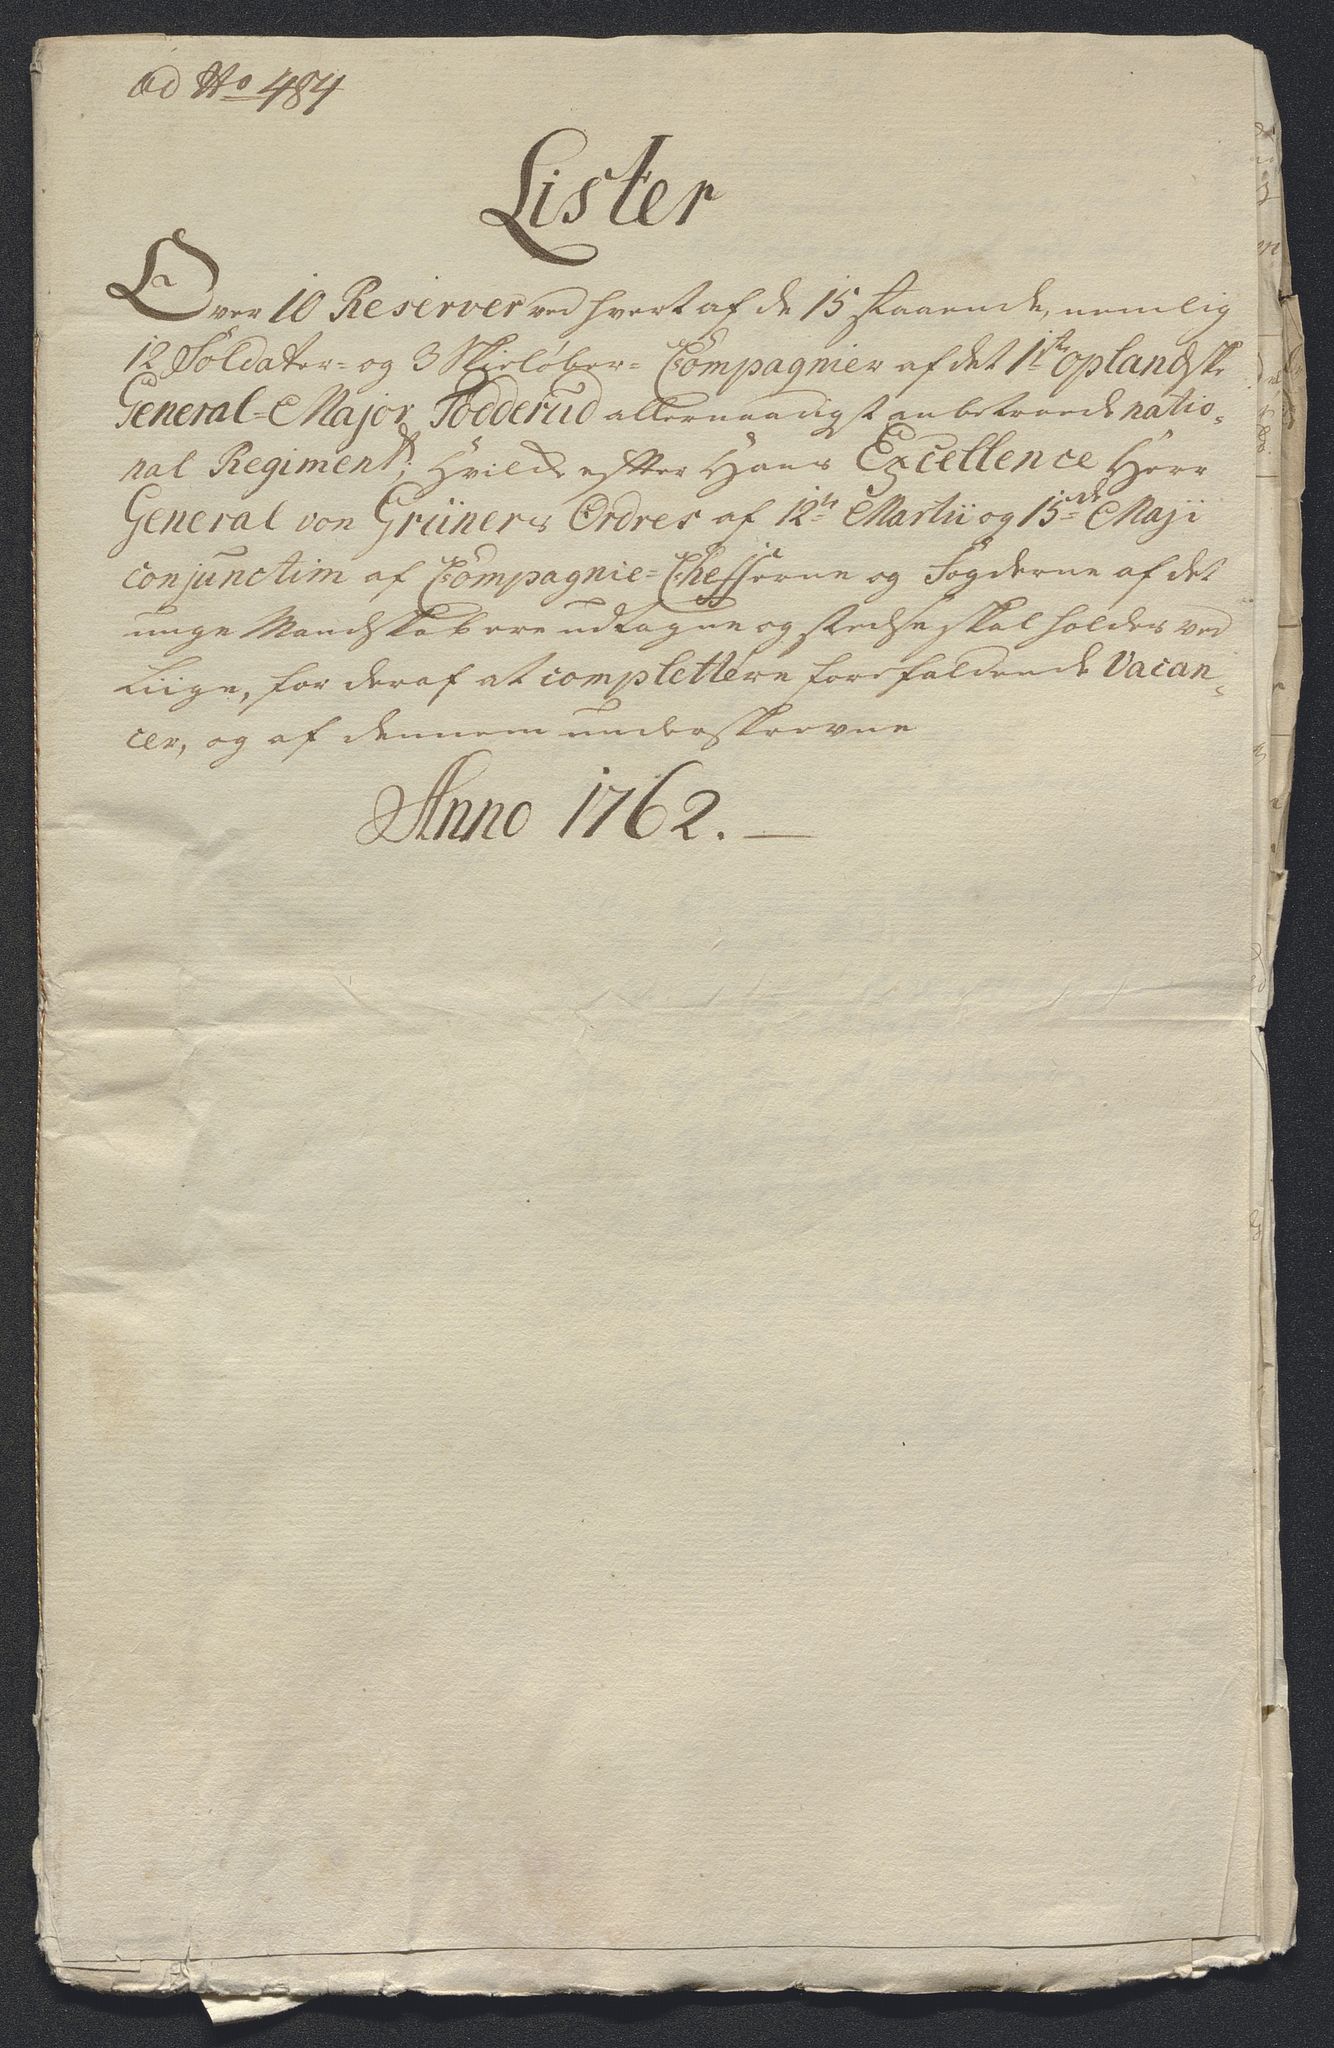 ad No 484
Lister
Over 10 Reserver ved hvert af de 15 staaende, nemlig
12 Soldater- og 3 Skieløber- Compagnier af det 1ste oplandske
General-Major Todderud allernaadigst anbetroede natio-
nal Regiment; Hvilke efter Hans Excellence Herr
General von Grüners Ordres af 12te Martii og 15de Maji
conjunctim af Compagnie-Chefferne og Fogderne af det
unge Mandskab ere udtagne og stedse skal holdes ved
Liige, for deraf at complettere forefaldende Vacan-
cer, og af dennem underskrevne
Anno 1762.